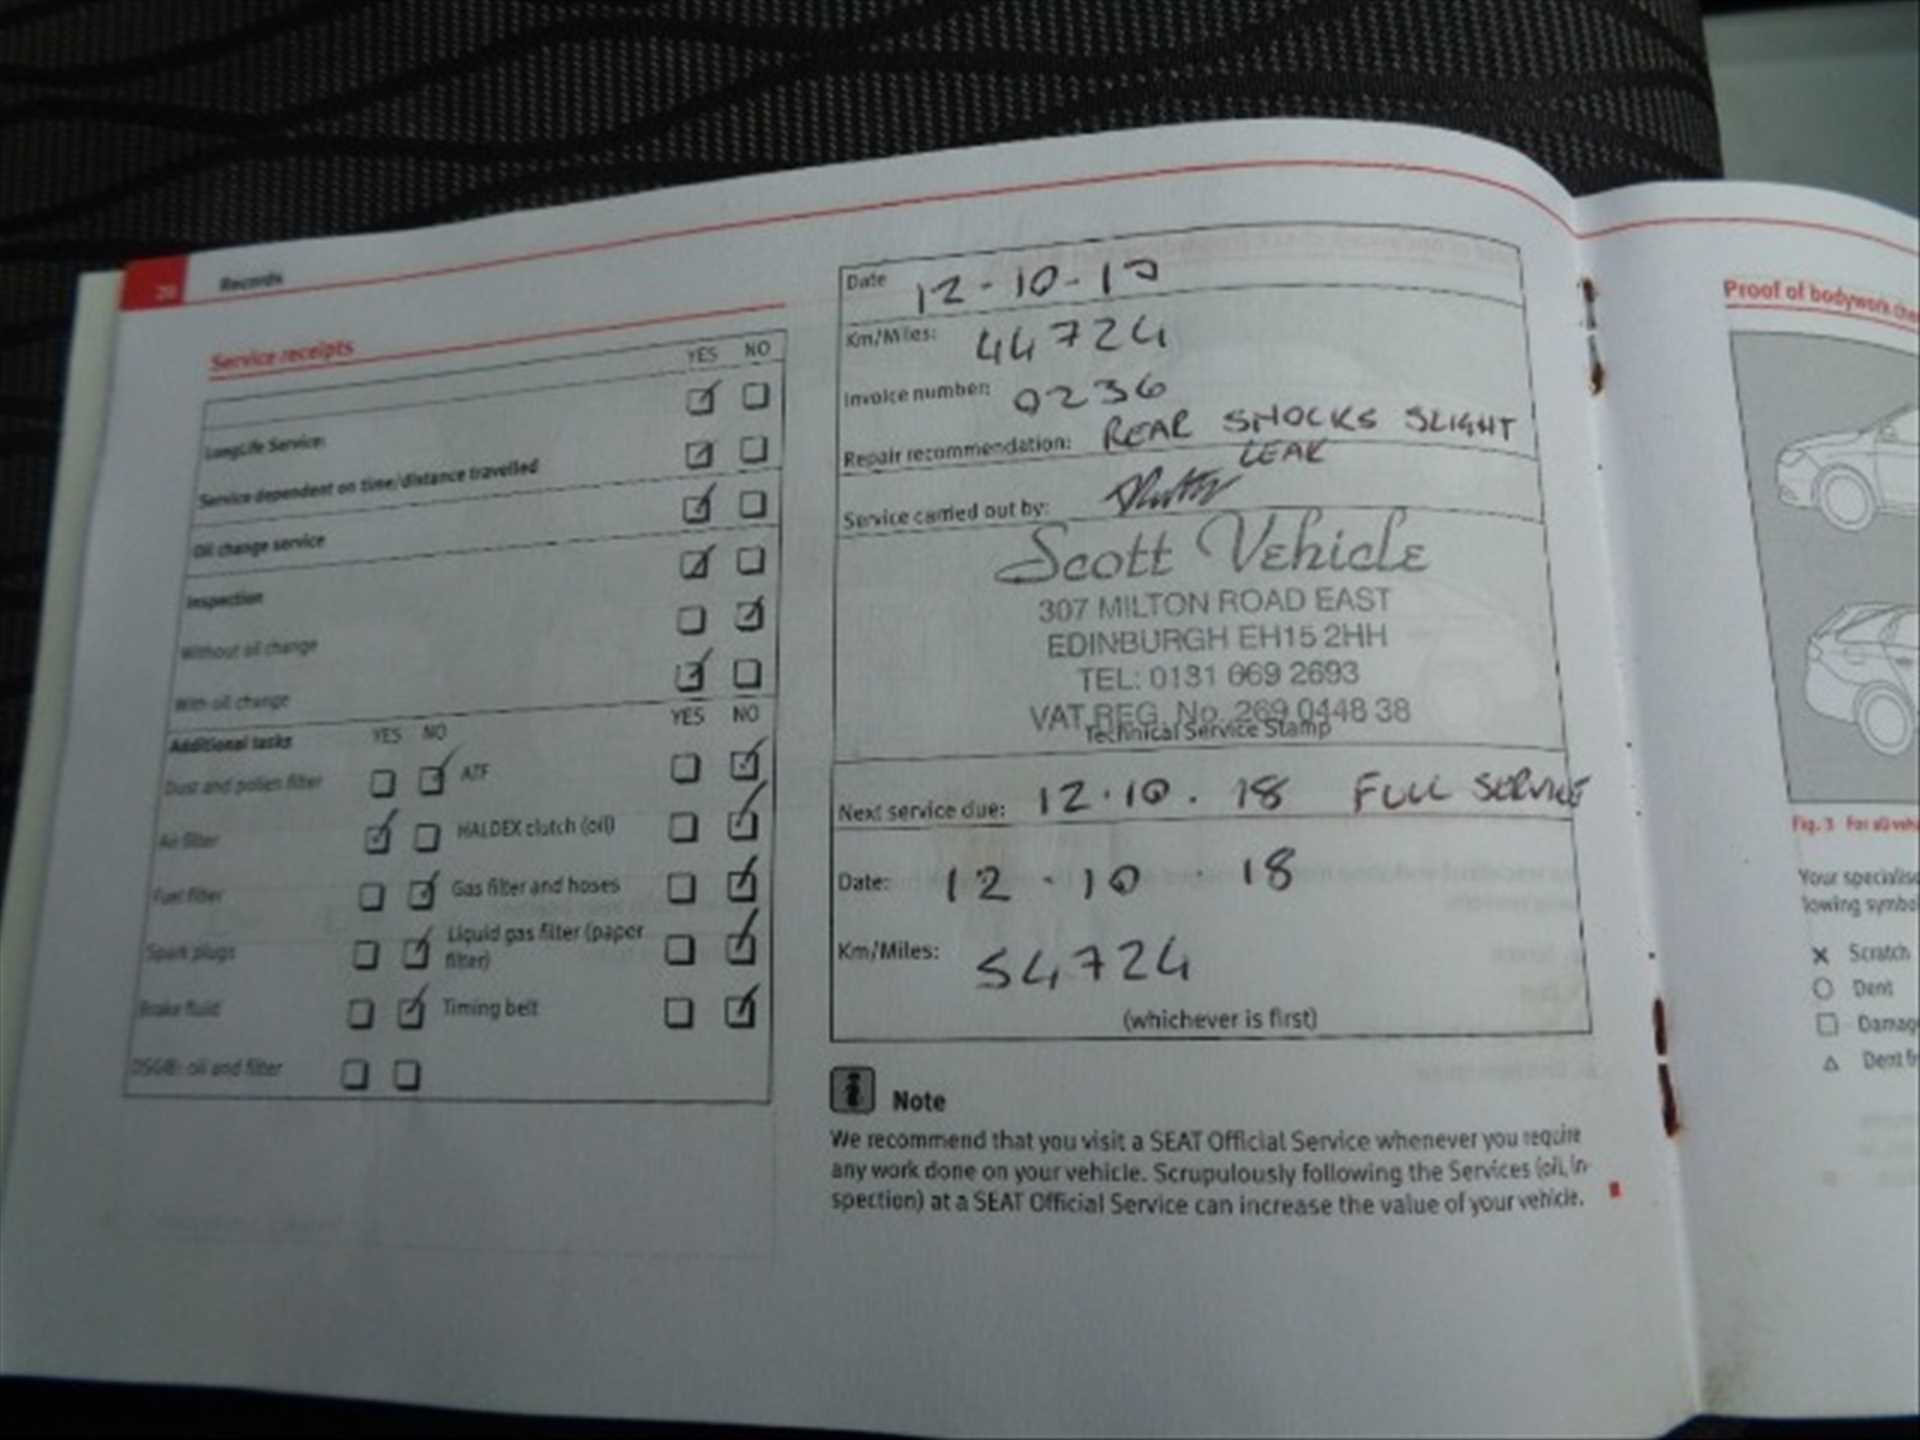 20 Records
Service receipts
YES NO
LongLife Service:
Service dependent on time/distance travelled
Oil change service
Inspection
Without oil change
With oil change
Additional tasks YES NO YES NO
Dust and pollen filter ATF
Air filter HALDEX clutch (oil)
Fuel filter Gas filter and hoses
Spark plugs Liquid gas filter (paper
filter)
Brake fluid Timing belt
DSG®: oil and filter
Date 12-10-17
Km/Miles: 44724
Invoice number: 0236
Repair recommendation: REAR SHOCKS SLIGHT
LEAK
Service carried out by:
Scott Vehicle
307 MILTON ROAD EAST
EDINBURGH EH15 2HH
TEL: 0131 669 2693
VAT REG. No. 269 0448 38
Technical Service Stamp
Next service due: 12.10.18 FULL SERVICE
Date: 12-10-18
Km/Miles: 54724
(whichever is first)
Note
We recommend that you visit a SEAT Official Service whenever you require
any work done on your vehicle. Scrupulously following the Services (oil, in-
spection) at a SEAT Official Service can increase the value of your vehicle.
Proof of bodywork
Fig. 3 For all
Your
lowing
Scratch
Dent
Dent